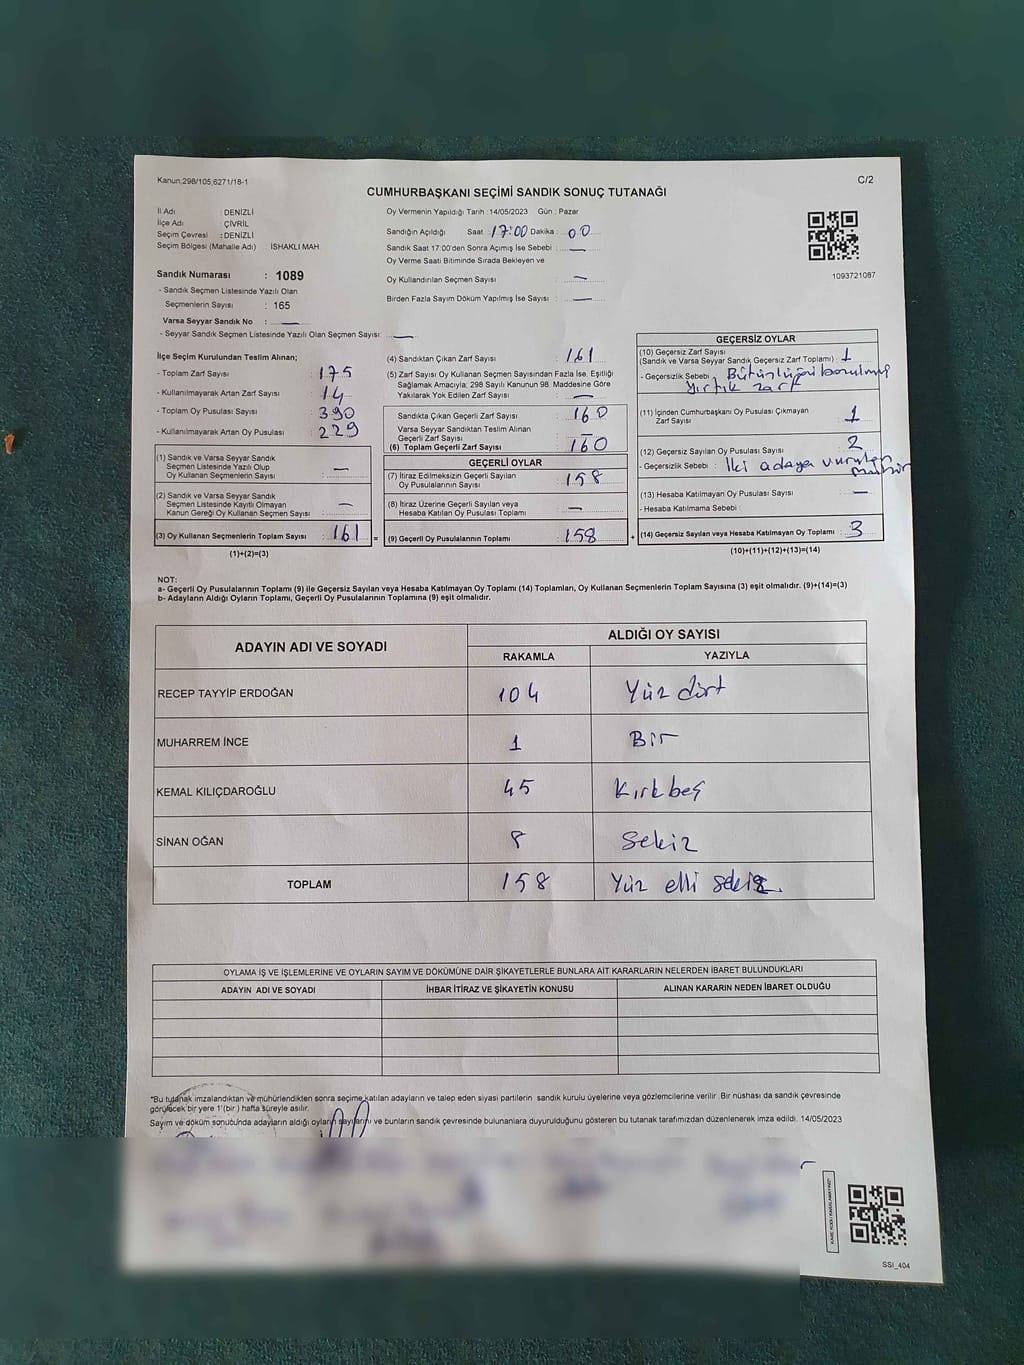 Kanun;298/105,6271/18-1
C/2
CUMHURBAŞKANI SEÇİMİ SANDIK SONUÇ TUTANAĞI
İl Adı DENİZLİ
İlçe Adı : ÇİVRİL
Seçim Çevresi : DENİZLİ
Seçim Bölgesi (Mahalle Adı) : İSHAKLI MAH
Sandık Numarası : 1089
- Sandık Seçmen Listesinde Yazılı Olan
Seçmenlerin Sayısı : 165
Varsa Seyyar Sandık No : —
- Seyyar Sandık Seçmen Listesinde Yazılı Olan Seçmen Sayısı: —
Oy Vermenin Yapıldığı Tarih : 14/05/2023 Gün : Pazar
Sandığın Açıldığı Saat : 17:00 Dakika : 00
Sandık Saat 17:00'den Sonra Açımış İse Sebebi : —
Oy Verme Saati Bitiminde Sırada Bekleyen ve
Oy Kullandırılan Seçmen Sayısı : —
Birden Fazla Sayım Döküm Yapılmış İse Sayısı : —
1093721087
İlçe Seçim Kurulundan Teslim Alınan;
- Toplam Zarf Sayısı : 175
- Kullanılmayarak Artan Zarf Sayısı : 14
- Toplam Oy Pusulası Sayısı : 390
- Kullanılmayarak Artan Oy Pusulası : 229
(1) Sandık ve Varsa Seyyar Sandık
Seçmen Listesinde Yazılı Olup
Oy Kullanan Seçmenlerin Sayısı : —
(2) Sandık ve Varsa Seyyar Sandık
Seçmen Listesinde Kayıtlı Olmayan
Kanun Gereği Oy Kullanan Seçmen Sayısı : —
(3) Oy Kullanan Seçmenlerin Toplam Sayısı : 161 =
(1)+(2)=(3)
(4) Sandıktan Çıkan Zarf Sayısı : 161
(5) Zarf Sayısı Oy Kullanan Seçmen Sayısından Fazla İse, Eşitliği
Sağlamak Amacıyla; 298 Sayılı Kanunun 98. Maddesine Göre
Yakılarak Yok Edilen Zarf Sayısı : —
Sandıkta Çıkan Geçerli Zarf Sayısı : 160
Varsa Seyyar Sandıktan Teslim Alınan
Geçerli Zarf Sayısı : —
(6) Toplam Geçerli Zarf Sayısı : 160
GEÇERLİ OYLAR
(7) İtiraz Edilmeksizin Geçerli Sayılan
Oy Pusulalarının Sayısı : 158
(8) İtiraz Üzerine Geçerli Sayılan veya
Hesaba Katılan Oy Pusulası Toplamı : —
(9) Geçerli Oy Pusulalarının Toplamı : 158 +
GEÇERSİZ OYLAR
(10) Geçersiz Zarf Sayısı
(Sandık ve Varsa Seyyar Sandık Geçersiz Zarf Toplamı) : 1
- Geçersizlik Sebebi : Bütünlüğü bozulmuş
Yırtık zarf
(11) İçinden Cumhurbaşkanı Oy Pusulası Çıkmayan
Zarf Sayısı : 1
(12) Geçersiz Sayılan Oy Pusulası Sayısı : 2
- Geçersizlik Sebebi : İki adaya vurulan
mühür
(13) Hesaba Katılmayan Oy Pusulası Sayısı : —
- Hesaba Katılmama Sebebi :
(14) Geçersiz Sayılan veya Hesaba Katılmayan Oy Toplamı : 3
(10)+(11)+(12)+(13)=(14)
NOT:
a- Geçerli Oy Pusulalarının Toplamı (9) ile Geçersiz Sayılan veya Hesaba Katılmayan Oy Toplamı (14) Toplamları, Oy Kullanan Seçmenlerin Toplam Sayısına (3) eşit olmalıdır. (9)+(14)=(3)
b- Adayların Aldığı Oyların Toplamı, Geçerli Oy Pusulalarının Toplamına (9) eşit olmalıdır.
ADAYIN ADI VE SOYADI ALDIĞI OY SAYISI
RAKAMLA YAZIYLA
RECEP TAYYİP ERDOĞAN 104 Yüz dört
MUHARREM İNCE 1 Bir
KEMAL KILIÇDAROĞLU 45 Kırkbeş
SİNAN OĞAN 8 Sekiz
TOPLAM 158 Yüz elli sekiz.
OYLAMA İŞ VE İŞLEMLERİNE VE OYLARIN SAYIM VE DÖKÜMÜNE DAİR ŞİKAYETLERLE BUNLARA AİT KARARLARIN NELERDEN İBARET BULUNDUKLARI
ADAYIN ADI VE SOYADI İHBAR İTİRAZ VE ŞİKAYETİN KONUSU ALINAN KARARIN NEDEN İBARET OLDUĞU
*Bu tutanak imzalandıktan ve mühürlendikten sonra seçime katılan adayların ve talep eden siyasi partilerin sandık kurulu üyelerine veya gözlemcilerine verilir .Bir nüshası da sandık çevresinde
görülecek bir yere 1'(bir ) hafta süreyle asılır.
Sayım ve döküm sonucunda adayların aldığı oyların sayılarını ve bunların sandık çevresinde bulunanlara duyurulduğunu gösteren bu tutanak tarafımızdan düzenlenerek imza edildi. 14/05/2023
KARE KODU KARALAMAYINIZ!
SSI_404